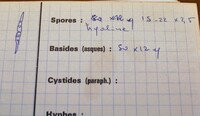 Spores : 18-22 x 3,5
hyaline
Basides (asques) : 50 x 12 μ
Cystides (paraph.) :
Hyphes :